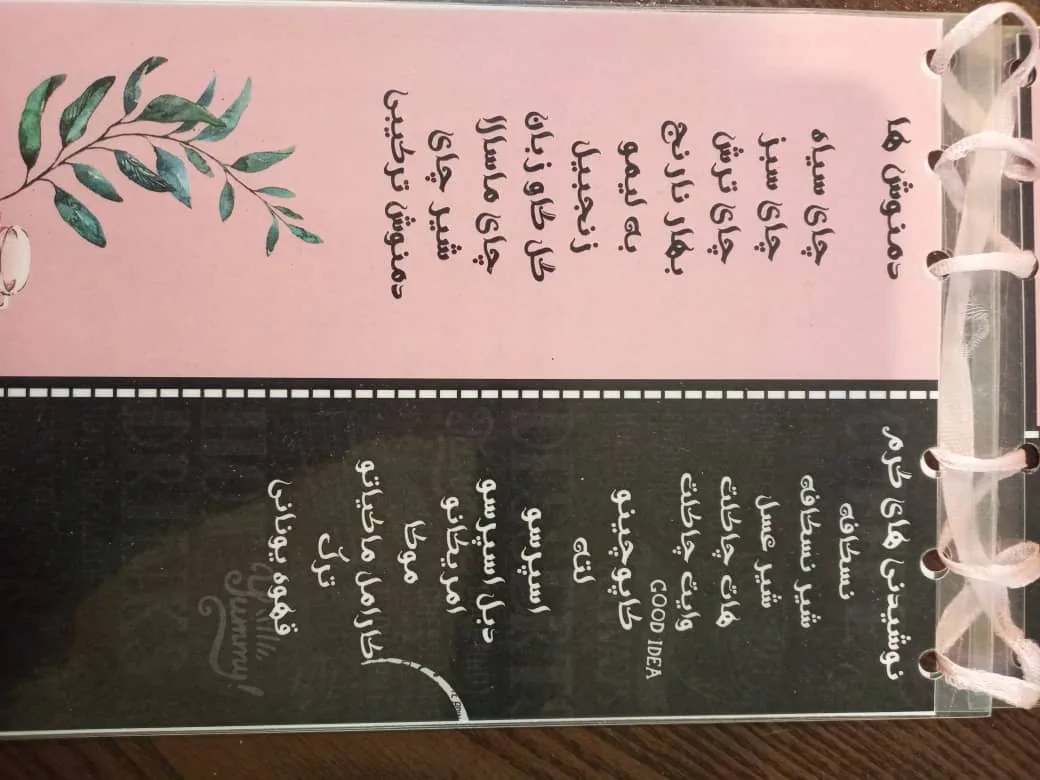 دمنوش ها
چای سیاه
چای سبز
چای ترش
بهار نارنج
به لیمو
زنجبیل
گل گاو زبان
چای ماسالا
شیر چای
دمنوش ترکیبی
نوشیدنی های گرم
نسکافه
شیر نسکافه
شیر عسل
هات چاکلت
وایت چاکلت
GOOD IDEA
کاپوچینو
لته
اسپرسو
دبل اسپرسو
امریکانو
موکا
کارامل ماکیاتو
ترک
قهوه یونانی
Yummy!